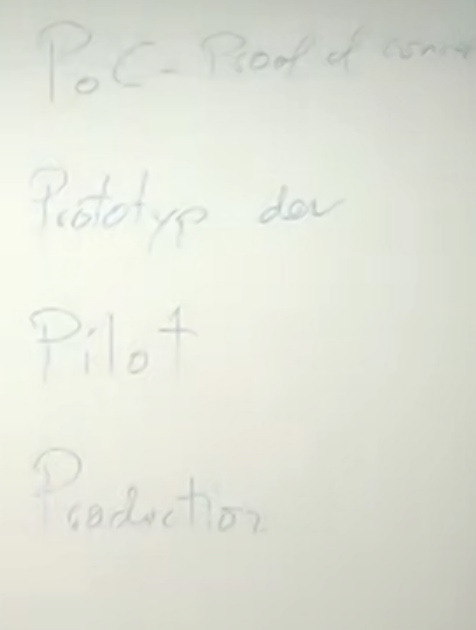 PoC - Proof of
Prototyp dev
Pilot
Production